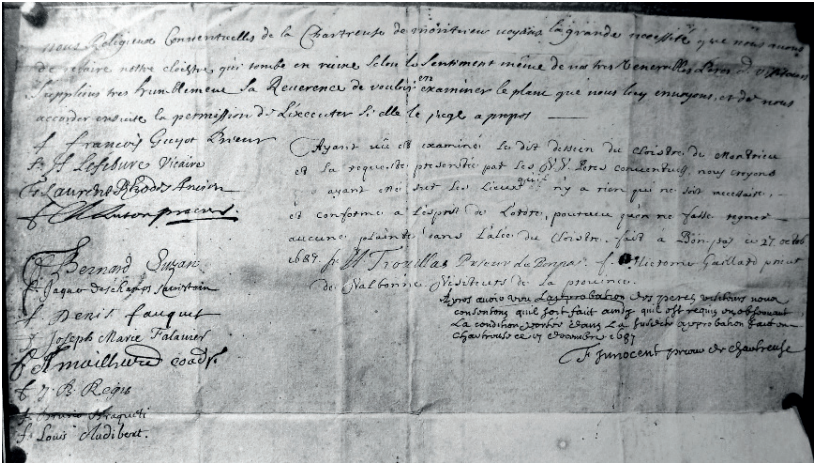 nous Religieux Conventuelles de la Chartreuse de montrieu voyans la grande necessité que nous avons
de refaire nottre cloistre, qui tombe en ruine selon le sentiment même de nos tres Venerables Peres
supplions tres humblement sa Reverence de vouloir en examiner le plan que nous luy envoyons, et de nous
accorder ensuite la permission de L'executer si elle le juge a propos
f. francois Guyot Prieur
f. H Lefebure Vicaire
f. Laurens Rhodes Ancien
f. procureur
f. Bernard Suzan
f. Jaque deschamps sacristain
f. Denis fauquet
f. Joseph Marie Falanier
f. A mailhard coadr.
f. J. B. Regis
f. Bruno
f. Louis Audibert.
Ayant vû et examiné le dit dessein du Cloistre de Montrieu
et la requeste presentée par les Peres conventuels, nous croyons
ayant esté sur les Lieux qu'il n'y a rien qui ne soit necessaire,
et conforme a L'esprit de L'ordre, pourveu qu'on ne fasse regner
aucune plainte dans l'alée du Cloistre. fait à Bonpas ce 27 octob
1687. fr. H Trouillas Prieur de Bonpas f. Victorin Gaillard prieur
de Valbonne Visiteurs de la province.
Apres avoir veu L'aprobation des peres visiteurs nous
consentons qu'il soit fait ainsy quil est requis en observant
La condition portée dans La susdite approbation fait en
Chartreuse ce 17 decembre 1687
F Innocent prieur de chartreuse